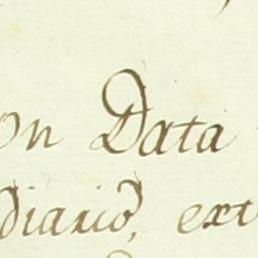 on Data
diario, ext